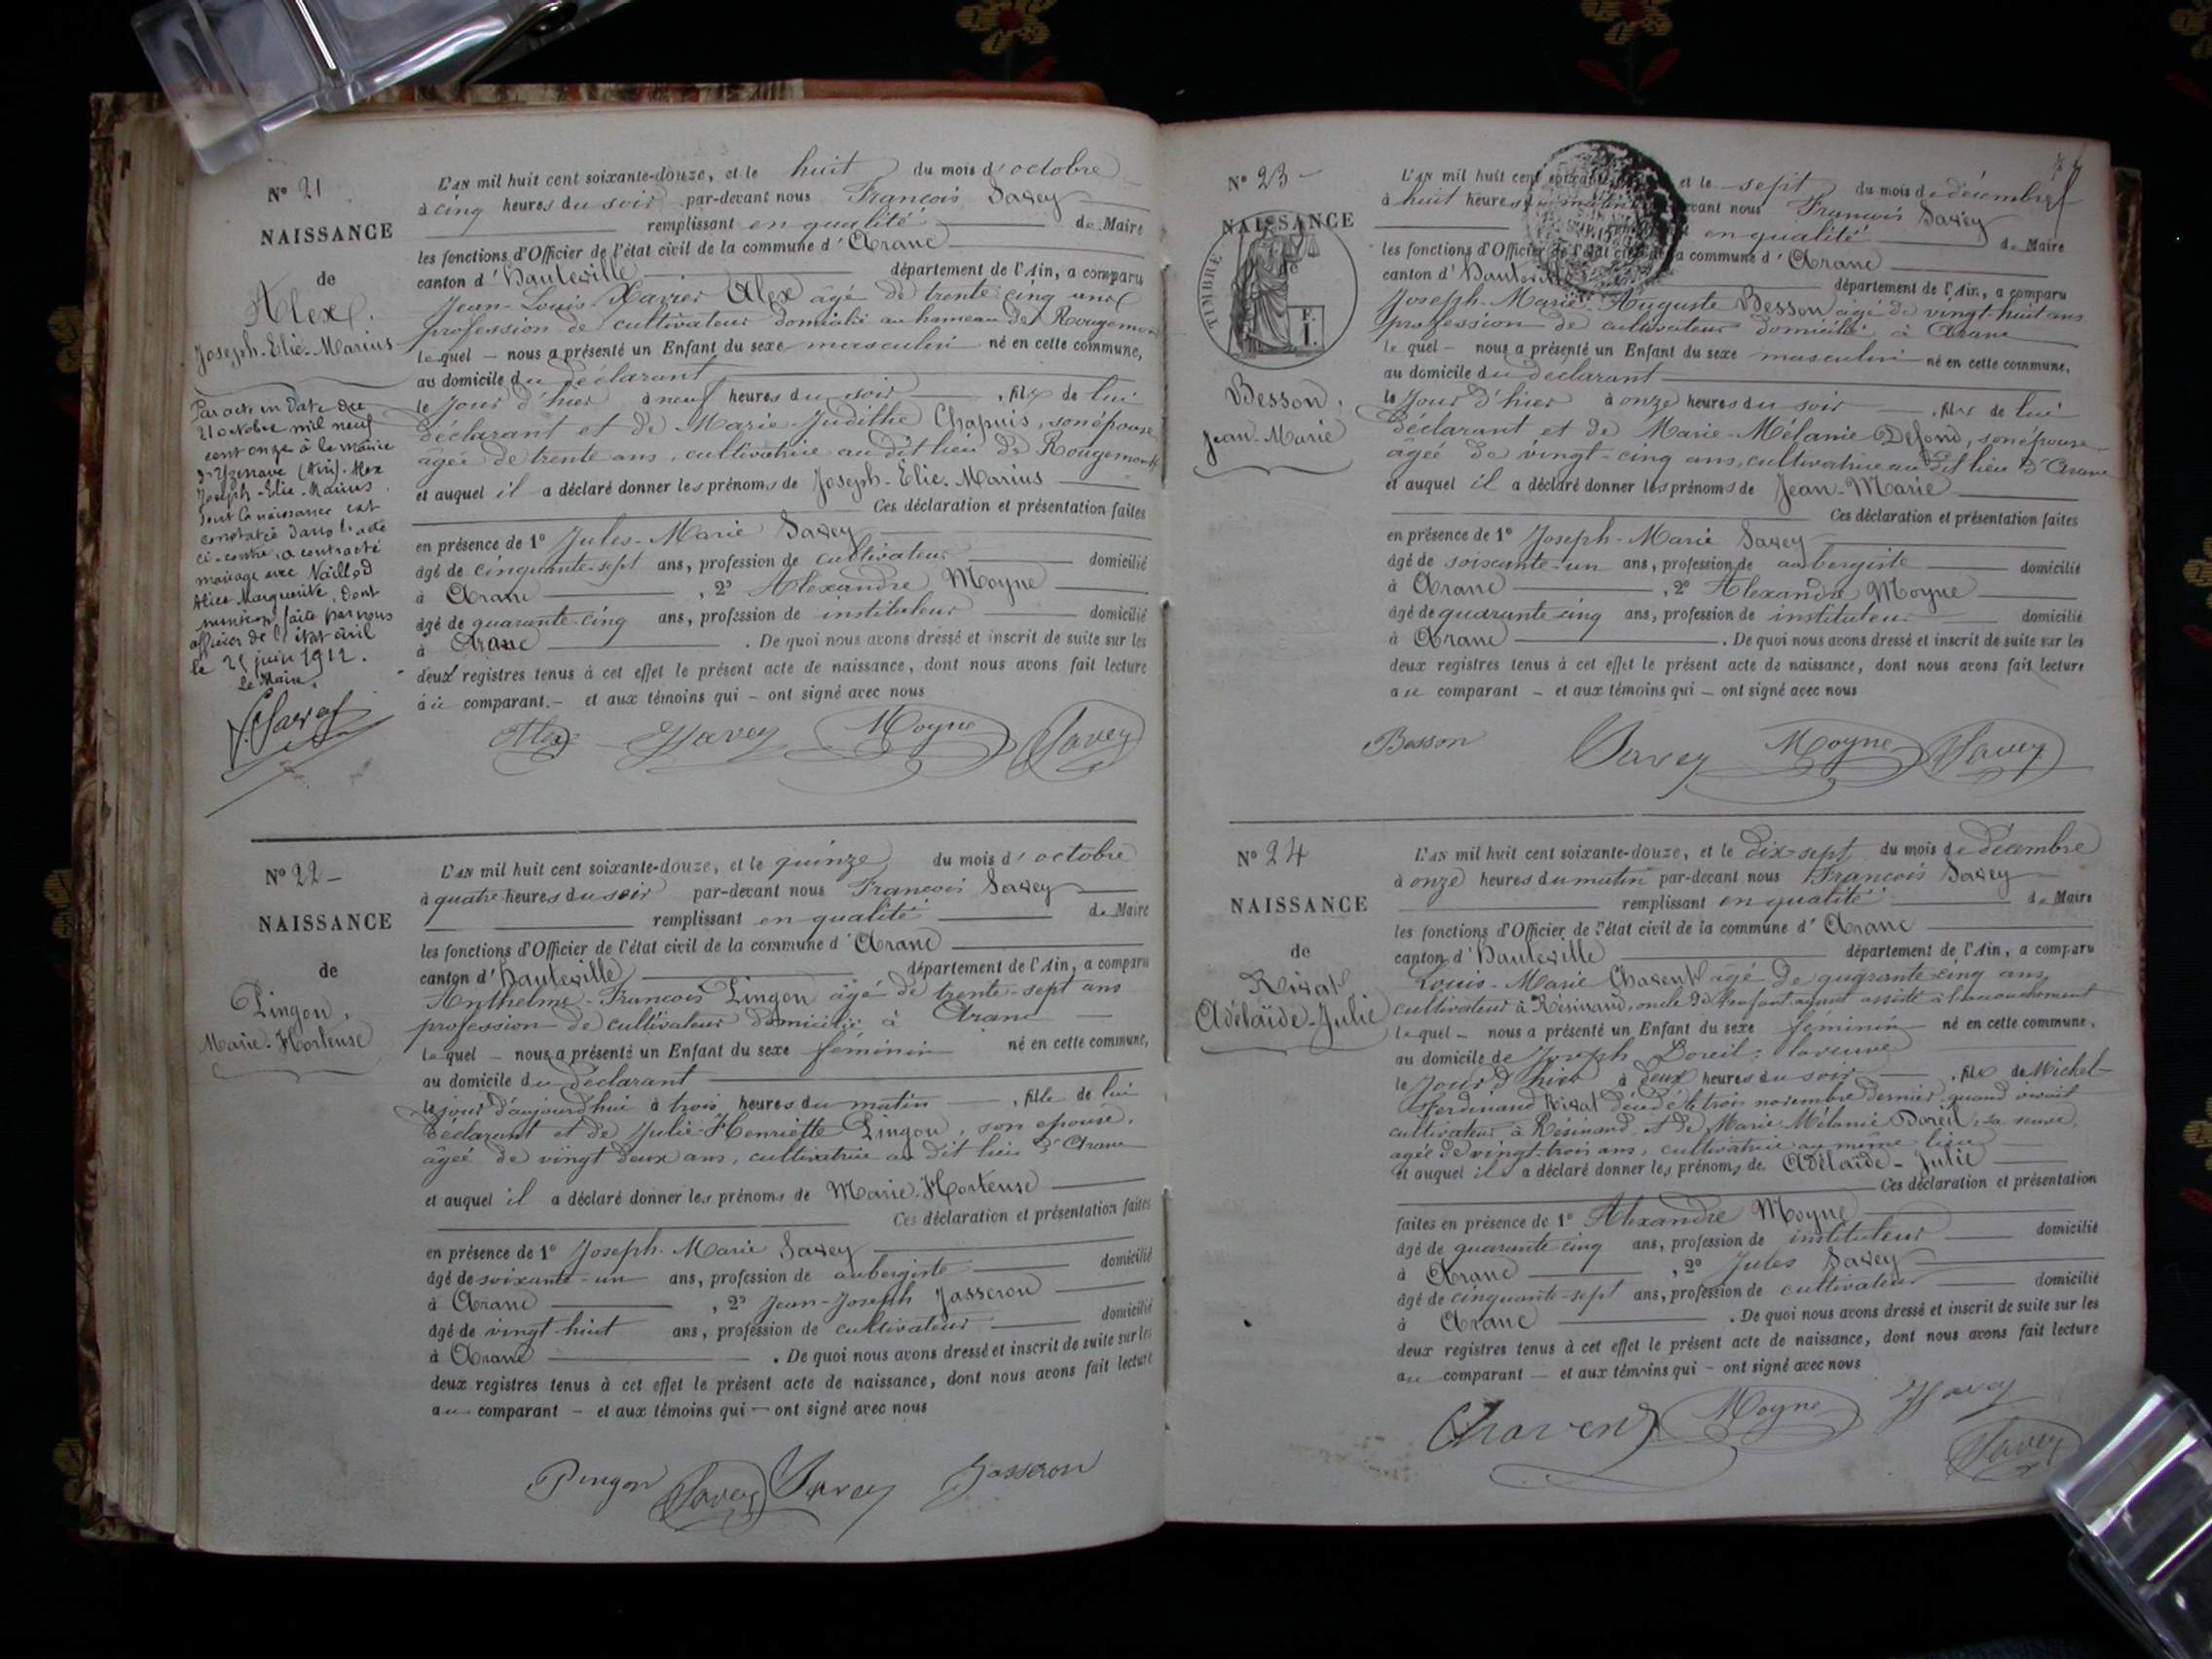 N° 21
NAISSANCE
de
Alex,
Joseph-Elie-Marius
Par acte en date du
21 octobre mil neuf
cent onze à la mairie
d'Izenave (Ain) Alex
Joseph-Elie-Marius
dont la naissance est
constatée dans l'acte
ci-contre, a contracté
mariage avec Naillod
Alice Marguerite, dont
mention faite par nous
officier de l'état civil
le 25 juin 1912.
Le Maire,
L'AN mil huit cent soixante-douze, et le huit du mois d'octobre
à cinq heures du soir par-devant nous François Savey
remplissant en qualité de Maire
les fonctions d'Officier de l'état civil de la commune d'Aranc
canton d'Hauteville département de l'Ain, a comparu
Jean-Louis-Xavier Alex âgé de trente cinq ans
profession de cultivateur domicilié au hameau de Rougemont
lequel — nous a présenté un Enfant du sexe masculin né en cette commune,
au domicile du déclarant
le jour d'hier à neuf heures du soir , fils de lui
déclarant et de Marie-Judithe Chapuis, son épouse
âgée de trente ans, cultivatrice au dit lieu de Rougemont
et auquel il a déclaré donner les prénoms de Joseph-Elie-Marius
Ces déclaration et présentation faites
en présence de 1° Jules-Marie Savey
âgé de cinquante-sept ans, profession de cultivateur domicilié
à Aranc , 2° Alexandre Moyne
âgé de quarante-cinq ans, profession de instituteur domicilié
à Aranc . De quoi nous avons dressé et inscrit de suite sur les
deux registres tenus à cet effet le présent acte de naissance, dont nous avons fait lecture
au comparant — et aux témoins qui — ont signé avec nous
Alex Savey Moyne Savey
N° 22
NAISSANCE
de
Pingon,
Marie-Hortense
L'AN mil huit cent soixante-douze, et le quinze du mois d'octobre
à quatre heures du soir par-devant nous François Savey
remplissant en qualité de Maire
les fonctions d'Officier de l'état civil de la commune d'Aranc
canton d'Hauteville département de l'Ain, a comparu
Anthelme-François Pingon âgé de trente-sept ans
profession de cultivateur domicilié à Aranc
lequel — nous a présenté un Enfant du sexe féminin né en cette commune,
au domicile du déclarant
le jour d'aujourd'hui à trois heures du matin , fille de lui
déclarant et de Julie-Henriette Pingon, son épouse,
âgée de vingt deux ans, cultivatrice au dit lieu d'Aranc
et auquel il a déclaré donner les prénoms de Marie-Hortense
Ces déclaration et présentation faites
en présence de 1° Joseph-Marie Savey
âgé de soixante-un ans, profession de aubergiste domicilié
à Aranc , 2° Jean-Joseph Jasseron
âgé de vingt huit ans, profession de cultivateur domicilié
à Aranc . De quoi nous avons dressé et inscrit de suite sur les
deux registres tenus à cet effet le présent acte de naissance, dont nous avons fait lecture
au comparant — et aux témoins qui — ont signé avec nous
Pingon Savey Savey Jasseron
N° 23
NAISSANCE
de
TIMBRE
F.
1.
Besson,
Jean-Marie
L'AN mil huit cent soixante et le sept du mois de décembre
à huit heures matin vant nous François Savey
en qualité de Maire
les fonctions d'Officier de l'état civil de la commune d'Aranc
canton d'Hauteville département de l'Ain, a comparu
Joseph-Marie-Auguste Besson âgé de vingt-huit ans
profession de cultivateur domicilié à Aranc
lequel — nous a présenté un Enfant du sexe masculin né en cette commune,
au domicile du déclarant
le jour d'hier à onze heures du soir , fils de lui
déclarant et de Marie-Mélanie Defond, son épouse
âgée de vingt-cinq ans, cultivatrice au dit lieu d'Aranc
et auquel il a déclaré donner les prénoms de Jean-Marie
Ces déclaration et présentation faites
en présence de 1° Joseph-Marie Savey
âgé de soixante-un ans, profession de aubergiste domicilié
à Aranc , 2° Alexandre Moyne
âgé de quarante cinq ans, profession de instituteur domicilié
à Aranc . De quoi nous avons dressé et inscrit de suite sur les
deux registres tenus à cet effet le présent acte de naissance, dont nous avons fait lecture
au comparant — et aux témoins qui — ont signé avec nous
Besson Savey Moyne Savey
N° 24
NAISSANCE
de
Rivat
Adélaïde-Julie
L'AN mil huit cent soixante-douze, et le dix-sept du mois de décembre
à onze heures du matin par-devant nous François Savey
remplissant en qualité de Maire
les fonctions d'Officier de l'état civil de la commune d'Aranc
canton d'Hauteville département de l'Ain, a comparu
Louis-Marie Chavent âgé de quarante-cinq ans
cultivateur à Résinand, oncle de l'enfant ayant assisté à l'accouchement
lequel — nous a présenté un Enfant du sexe féminin né en cette commune,
au domicile de Joseph Doreil; la veuve
le jour d'hier à deux heures du soir , fille de Michel-
Ferdinand Rivat décédé le trois novembre dernier, quand vivait
cultivateur à Résinand, et de Marie Mélanie Doreil, sa veuve,
âgée de vingt-trois ans, cultivatrice au même lieu
et auquel il a déclaré donner les prénoms de Adélaïde-Julie
Ces déclaration et présentation
faites en présence de 1° Alexandre Moyne
âgé de quarante cinq ans, profession de instituteur domicilié
à Aranc , 2° Jules Savey
âgé de cinquante-sept ans, profession de cultivateur domicilié
à Aranc . De quoi nous avons dressé et inscrit de suite sur les
deux registres tenus à cet effet le présent acte de naissance, dont nous avons fait lecture
au comparant — et aux témoins qui — ont signé avec nous
Chavent Moyne Savey
Savey